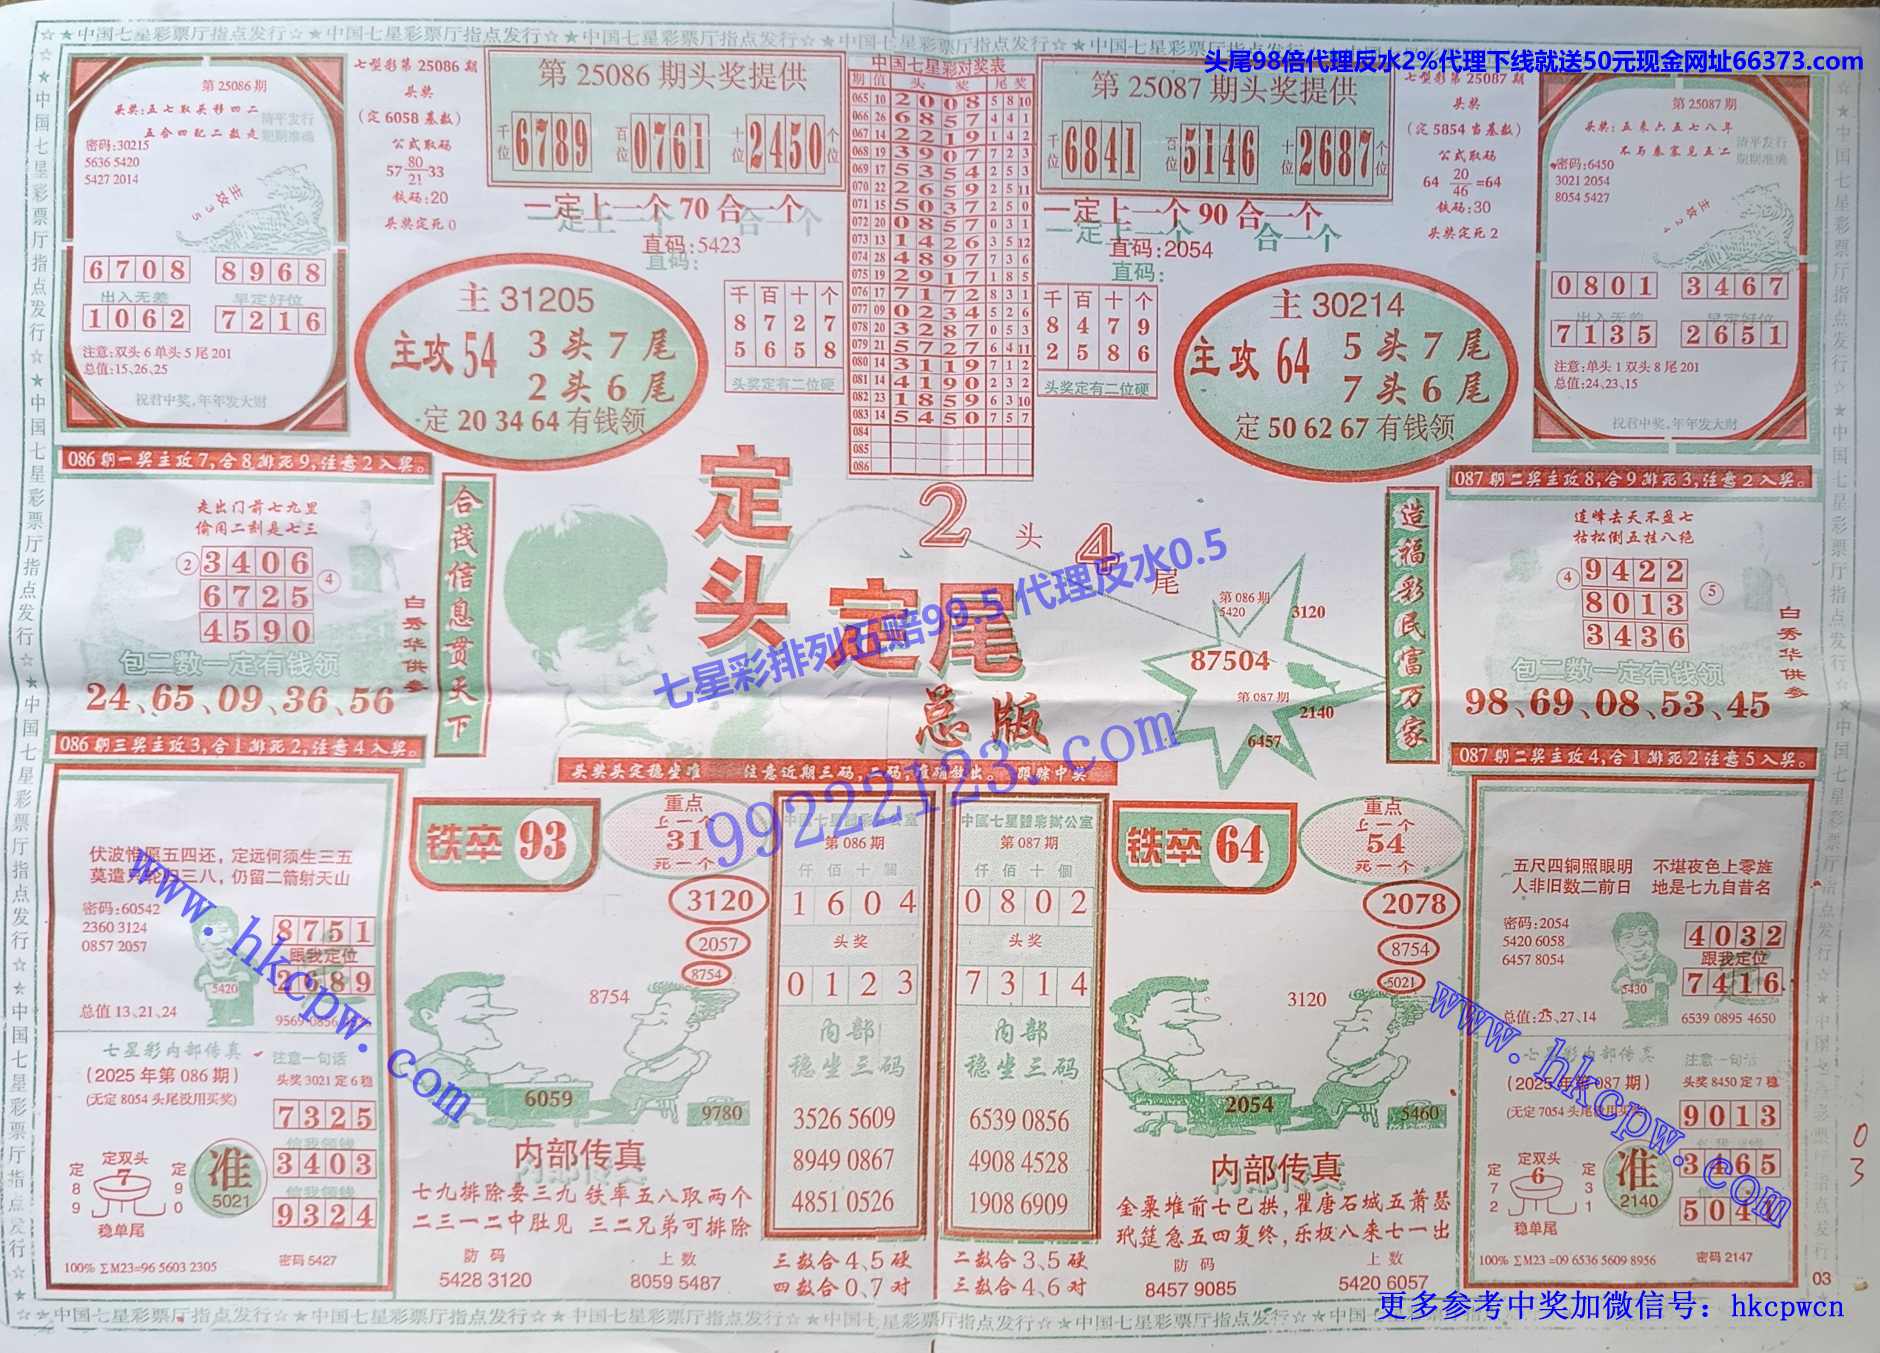 ☆★中国七星彩票厅指点发行☆★中国七星彩票厅指点发行☆★中国七星彩票厅指点发行☆
头尾98倍代理反水2%代理下线就送50元现金网址66373.com
第 25086 期
头奖:五七取头移四二
五合四配二数走
清平发行
期期准确
密码:30215
5636 5420
5427 2014
主攻35
6708
8968
出入无差
早定好位
1062
7216
注意:双头 6 单头 5 尾 201
总值:15,26,25
祝君中奖,年年发大财
七型彩第 25086 期
头奖
(定 6058 基数)
公式取码
57 80/21 33
铁码:20
头奖定死 0
第 25086 期头奖提供
千位 6789 百位 0761 十位 2450 个位
一定上一个 70 合一个
直码:5423
直码:
主 31205
主攻 54
3 头 7 尾
2 头 6 尾
定 20 34 64 有钱领
千 百 十 个
8 7 2 7
5 6 5 8
头奖定有二位硬
中国七星彩对奖表
期 值 头 奖 尾 奖
065 10 2008 5 8 10
066 26 6857 4 4 1
067 14 2219 1 4 2
068 19 3907 7 2 3
069 17 5354 2 5 3
070 22 2659 2 5 11
071 15 5037 2 5 0
072 20 0857 0 3 1
073 13 1426 3 5 12
074 28 4897 7 3 6
075 19 2917 1 8 5
076 17 7172 8 3 1
077 09 0234 5 2 6
078 20 3287 0 5 3
079 21 5727 6 4 11
080 14 3119 7 1 2
081 14 4190 2 3 2
082 23 1859 6 3 10
083 14 5450 7 5 7
084
085
086
第 25087 期头奖提供
千位 6841 百位 5146 十位 2687 个位
一定上一个 90 合一个
一定上一个 合一个
直码:2054
直码:
千 百 十 个
8 4 7 9
2 5 8 6
头奖定有二位硬
主 30214
主攻 64
5 头 7 尾
7 头 6 尾
定 50 62 67 有钱领
七型彩第 25087 期
头奖
(定 5854 当基数)
公式取码
64 20/46 =64
铁码:30
头奖定死 2
第 25087 期
头奖:五来六五七八年
不与秦塞见五二
清平发行
期期准确
密码:6450
3021 2054
8054 5427
主攻24
0801
3467
出入无差
早定好位
7135
2651
注意:单头 1 双头 8 尾 201
总值:24,23,15
祝君中奖,年年发大财
086 期一奖主攻7,合8排死9,注意2入奖。
走出门前七九里
偷闲二刻是七三
② 3406
6725 ④
4590
包二数一定有钱领
24、65、09、36、56
白秀华供参
合茂信息贯天下
定头
定尾
2 头 4 尾
总版
七星彩排列五赔99.5 代理反水0.5
99222123.com
第 086 期
5420
3120
87504
第 087 期
2140
6457
造福彩民富万家
087 期二奖主攻8,合9排死3,注意2入奖。
连峰去天不盈七
枯松倒五挂八绝
④ 9422
8013 ⑤
3436
包二数一定有钱领
98、69、08、53、45
白秀华供参
086 期三奖主攻3,合1排死2,注意4入奖。
头奖头定稳坐准 注意近期三码,二码,准确放出。 跟踪中奖
087 期二奖主攻4,合1排死2注意5入奖。
伏波惟愿五四还,定远何须生三五
莫遣只轮归三八,仍留二箭射天山
密码:60542
2360 3124
0857 2057
5420
8751
跟我定位
2689
总值 13,21,24
七星彩内部传真
(2025 年第 086 期)
(无定 8054 头尾没用买奖)
注意一句话
头奖 3021 定 6 稳
7325
信我领钱
3403
信我领钱
9324
定双头
7
定 8 9
定 9 0
稳单尾
准
5021
100% ∑M23=96 5603 2305
密码 5427
www.hkcpw.com
铁卒 93
重点
上一个
31
死一个
3120
2057
8754
8754
6059
9780
内部传真
七九排除要三九 铁率五八取两个
二三一二中肚见 三二兄弟可排除
防 码
5428 3120
上 数
8059 5487
中国七星體彩辦公室
第 086 期
仟 佰 十 個
1604
头 奖
0123
内部
稳坐三码
3526 5609
8949 0867
4851 0526
三数合 4,5 硬
四数合 0,7 对
中國七星體彩辦公室
第 087 期
仟 佰 十 個
0802
头 奖
7314
内部
稳坐三码
6539 0856
4908 4528
1908 6909
二数合 3,5 硬
三数合 4,6 对
铁卒 64
重点
上一个
54
死一个
2078
8754
5021
3120
2054
5460
内部传真
金粟堆前七已拱,瞿唐石城五萧瑟
玳筵急五四复终,乐极八来七一出
防 码
8457 9085
上 数
5420 6057
五尺四铜照眼明 不堪夜色上零旌
人非旧数二前日 地是七九自昔名
密码:2054
5420 6058
6457 8054
5430
4032
跟我定位
7416
总值:25,27,14
6539 0895 4650
七星彩内部传真
(2025 年第 087 期)
注意一句话
头奖 8450 定 7 稳
9013
3465
定双头
6
定 7 2
定 3 1
稳单尾
准
2140
100% ∑M23 =09 6536 5609 8956
密码 2147
www.hkcpw.com
03
03
☆★中国七星彩票厅指点发行☆★中国七星彩票厅指点发行☆★中国七星彩票厅指点发行☆
更多参考中奖加微信号：hkcpwcn